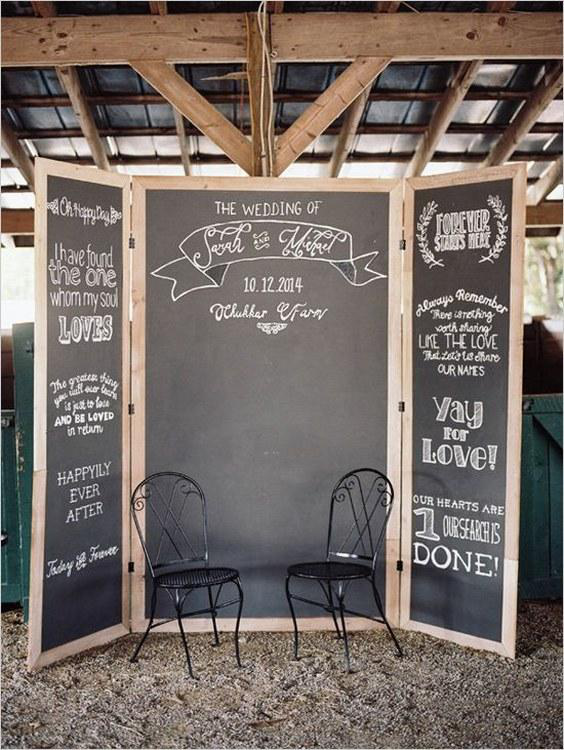 Oh Happy Day
I have found
the one
whom my soul
LOVES
The greatest thing
you will ever learn
is just to love
AND BE LOVED
in return
HAPPYILY
EVER
AFTER
Today & Forever
THE WEDDING OF
Sarah AND Michael
10.12.2014
Chukkar Farm
FOREVER
STARTS HERE
Always Remember
There is nothing
worth sharing
LIKE THE LOVE
That Let's Us Share
OUR NAMES
Yay
FOR
Love!
OUR HEARTS ARE
1 OUR SEARCH IS
DONE!